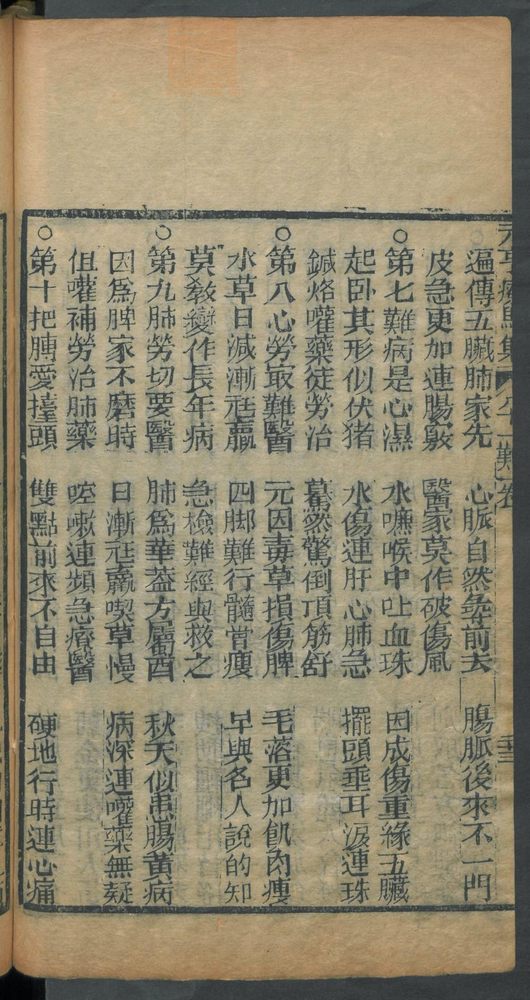 元亨療馬集
遍傳五臟肺家先　心脈自然彝前去　腸脈後來不一門
皮急更加連腸竅　醫家莫作破傷風
第七難病是心濕　水嚥喉中吐血珠　因成傷重緣五臟
起卧其形似伏猪　水傷連肝心肺急　擺頭垂耳淚連珠
鍼烙嚾藥徒勞治　驀然驚倒頂筋舒
第八心勞最難醫　元因毒草損傷脾　毛落更加飢肉瘦
水草日減漸尫羸　四脚難行髓常瘦　早與名人說的知
莫教變作長年病　急檢難經與救之
第九肺勞切要醫　肺爲華葢方屬酉　秋天似患腸黄病
因爲脾家不磨時　日漸尫羸喫草慢　病深連嚾藥無疑
但嚾補勞治肺藥　咳嗽連頻急療醫
第十把膊愛擡頭　雙點前來不自由　硬地行時連心痛